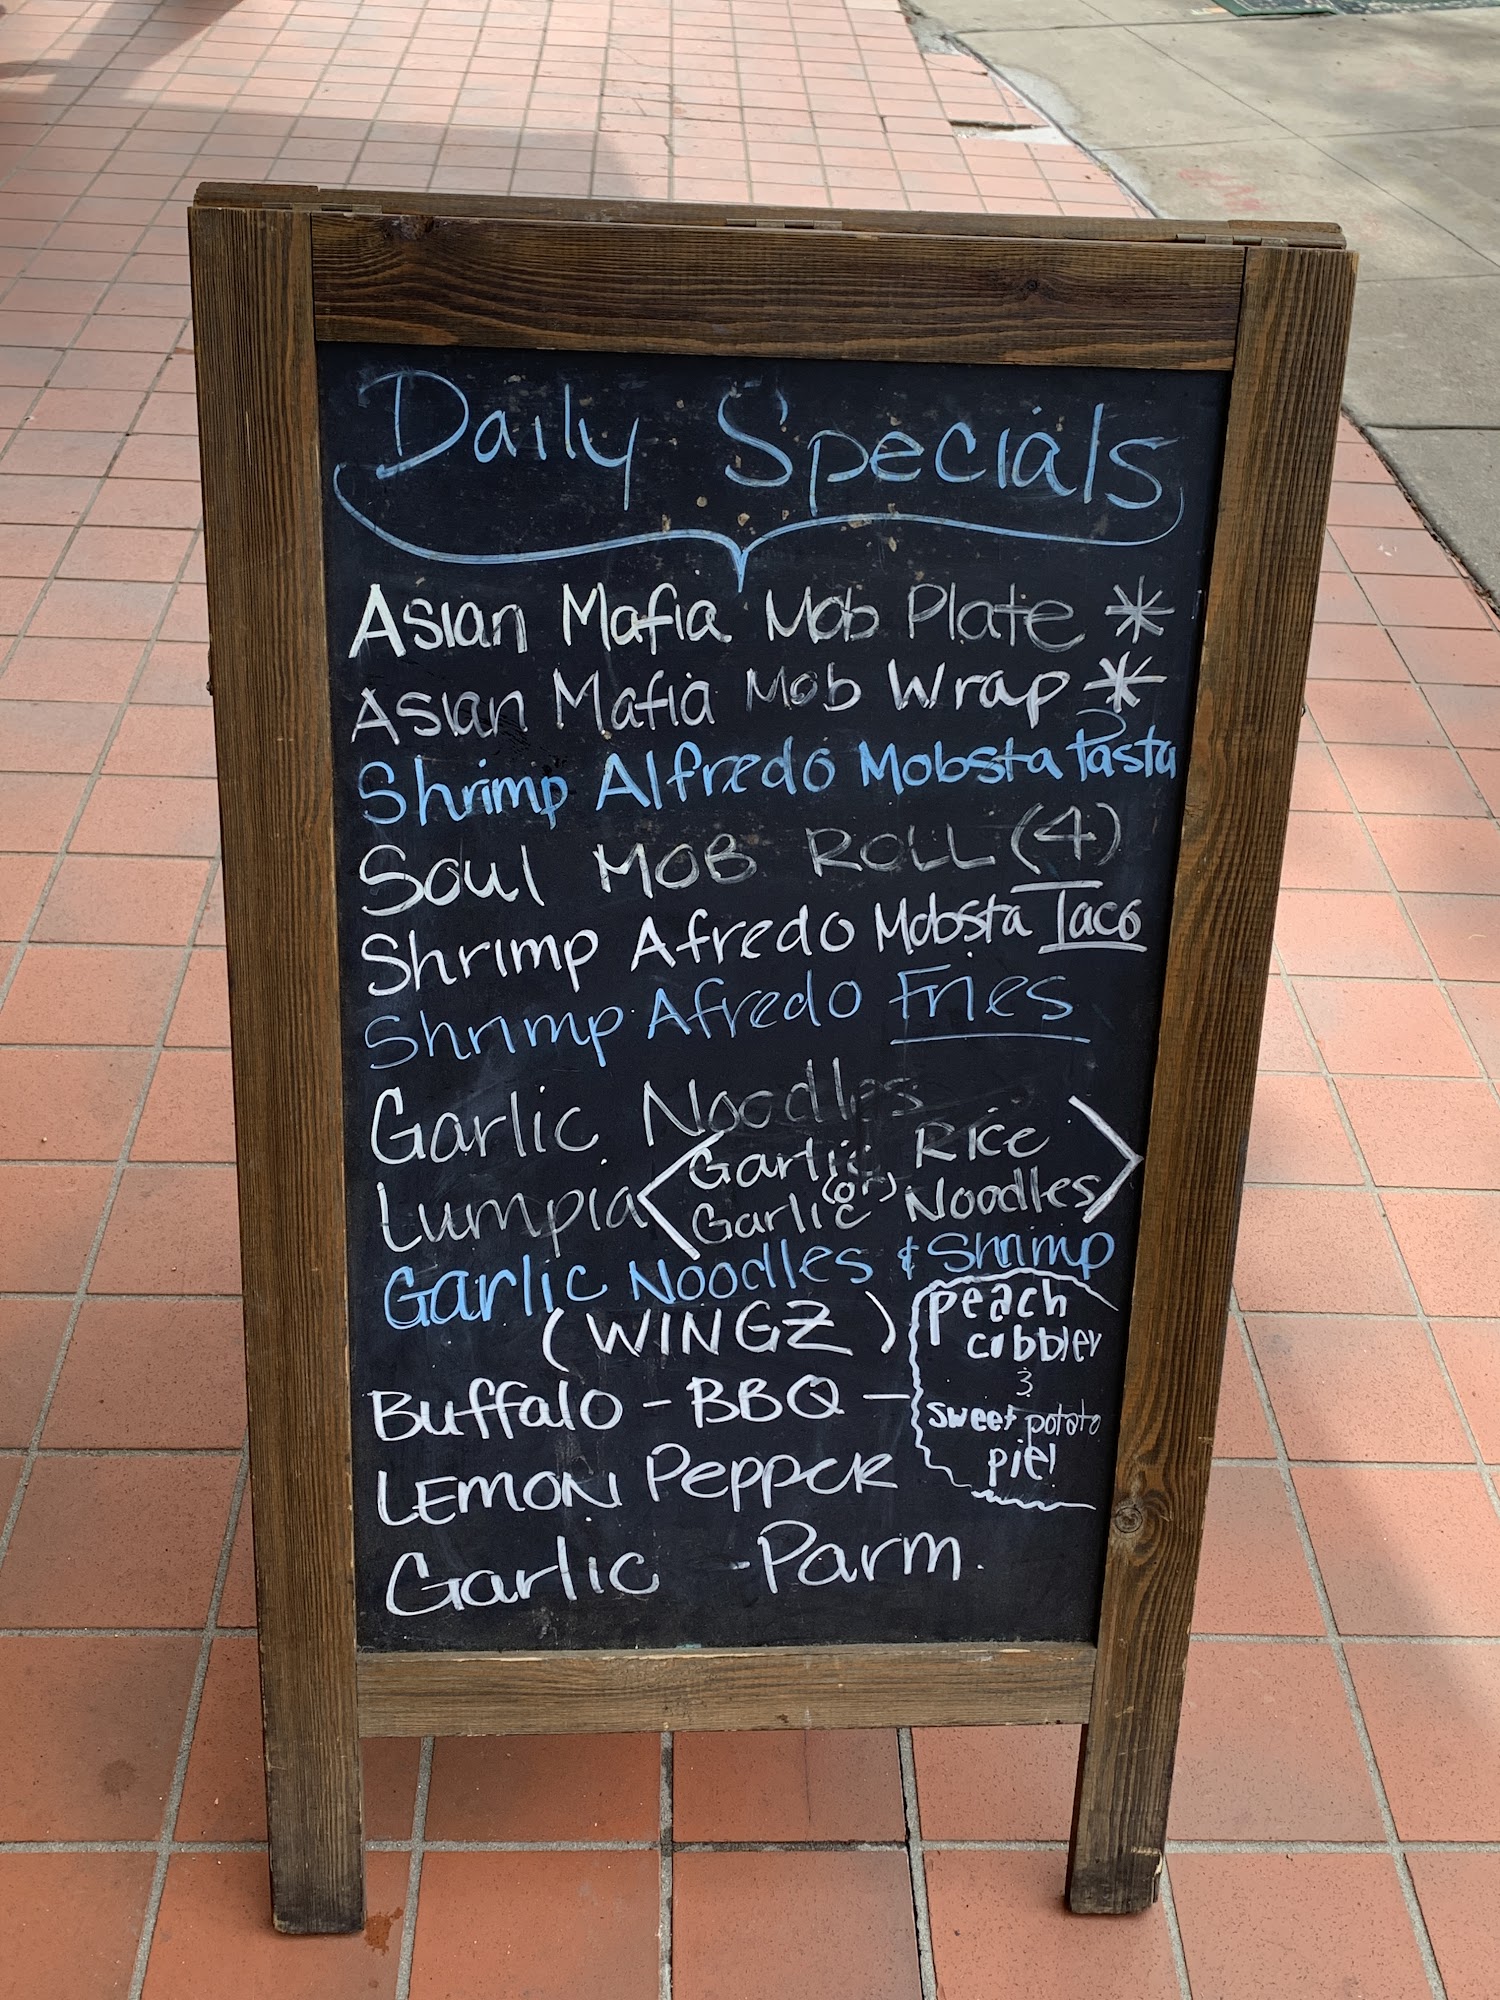 Daily Specials
Asian Mafia Mob Plate *
Asian Mafia Mob Wrap *
Shrimp Alfredo Mobsta Pasta
Soul MOB ROLL (4)
Shrimp Afredo Mobsta Taco
Shrimp Afredo Fries
Garlic Noodles
Lumpia < Garlic Rice >
(or)
Garlic Noodles
Garlic Noodles & Shrimp
(WINGZ)
Buffalo - BBQ -
LEMON Pepper
Garlic - Parm.
Peach
cobbler
&
sweet potato
pie!